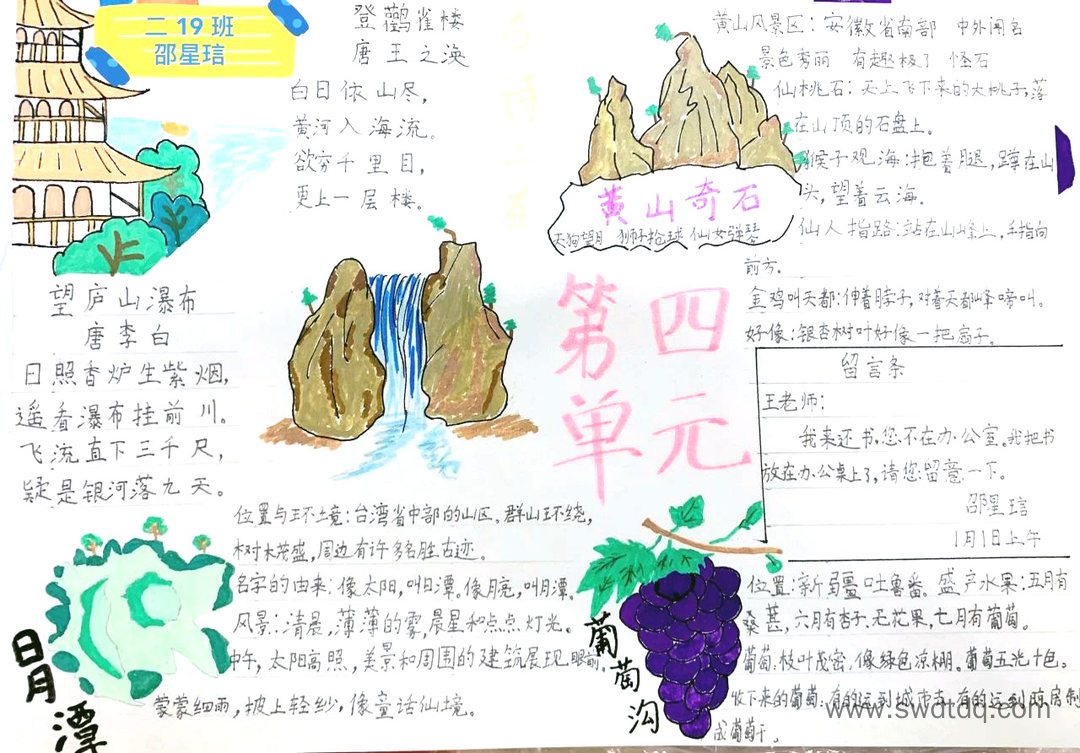 二 19 班
邵星琂
登鹳雀楼
唐 王之涣
白日依山尽，
黄河入海流。
欲穷千里目，
更上一层楼。
古诗二首
望庐山瀑布
唐 李白
日照香炉生紫烟，
遥看瀑布挂前川。
飞流直下三千尺，
疑是银河落九天。
黄山风景区：安徽省南部 中外闻名
景色秀丽 有趣极了 怪石
仙桃石：天上飞下来的大桃子，落
在山顶的石盘上。
猴子观海：抱着腿，蹲在山
头，望着云海。
仙人指路：站在山峰上，手指向
前方.
金鸡叫天都：伸着脖子，对着天都峰啼叫。
好像：银杏树叶好像一把扇子。
黄山奇石
天狗望月 狮子抢球 仙女弹琴
第四
单元
留言条
王老师：
我来还书，您不在办公室。我把书
放在办公桌上了，请您留意一下。
邵星琂
1月1日上午
位置与环境：台湾省中部的山区。群山环绕，
树木茂盛，周边有许多名胜古迹。
名字的由来：像太阳，叫日潭。像月亮，叫月潭。
风景：清晨，薄薄的雾，晨星和点点灯光。
中午，太阳高照，美景和周围的建筑展现眼前。
蒙蒙细雨，披上轻纱，像童话仙境。
日月潭
葡萄沟
位置：新疆吐鲁番。盛产水果：五月有
桑葚，六月有杏子.无花果，七月有葡萄。
葡萄：枝叶茂密，像绿色凉棚。葡萄五光十色。
收下来的葡萄：有的运到城市去，有的运到阴房制
成葡萄干。
www.swdtdq.com